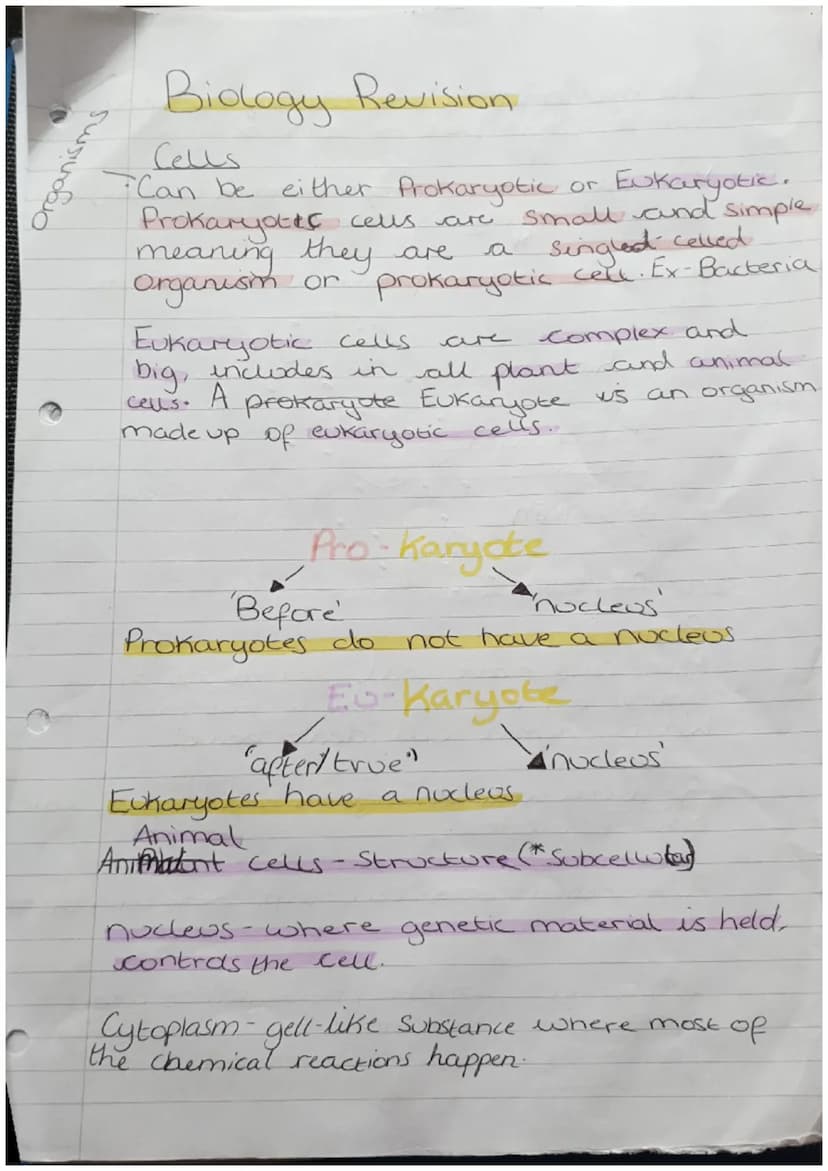 Biology Revision
organisms
Cells
Can be either Prokaryotic or Eukaryotic.
Prokaryotic cells are small and simple
meaning they are a singled-celled
organism or prokaryotic cell. Ex-Bacteria
Eukaryotic cells are complex and
big, includes in all plant and animal
cells. A prokaryote Eukaryote is an organism
made up of eukaryotic cells.
Pro-Karyote
'Before' 'nucleus'
Prokaryotes do not have a nucleus
Eu-Karyote
'after/true' 'nucleus'
Eukaryotes have a nucleus
Animal
cells - Structure (*Subcellular)
nucleus - where genetic material is held,
controls the cell.
Cytoplasm - gell-like substance where most of
the chemical reactions happen.